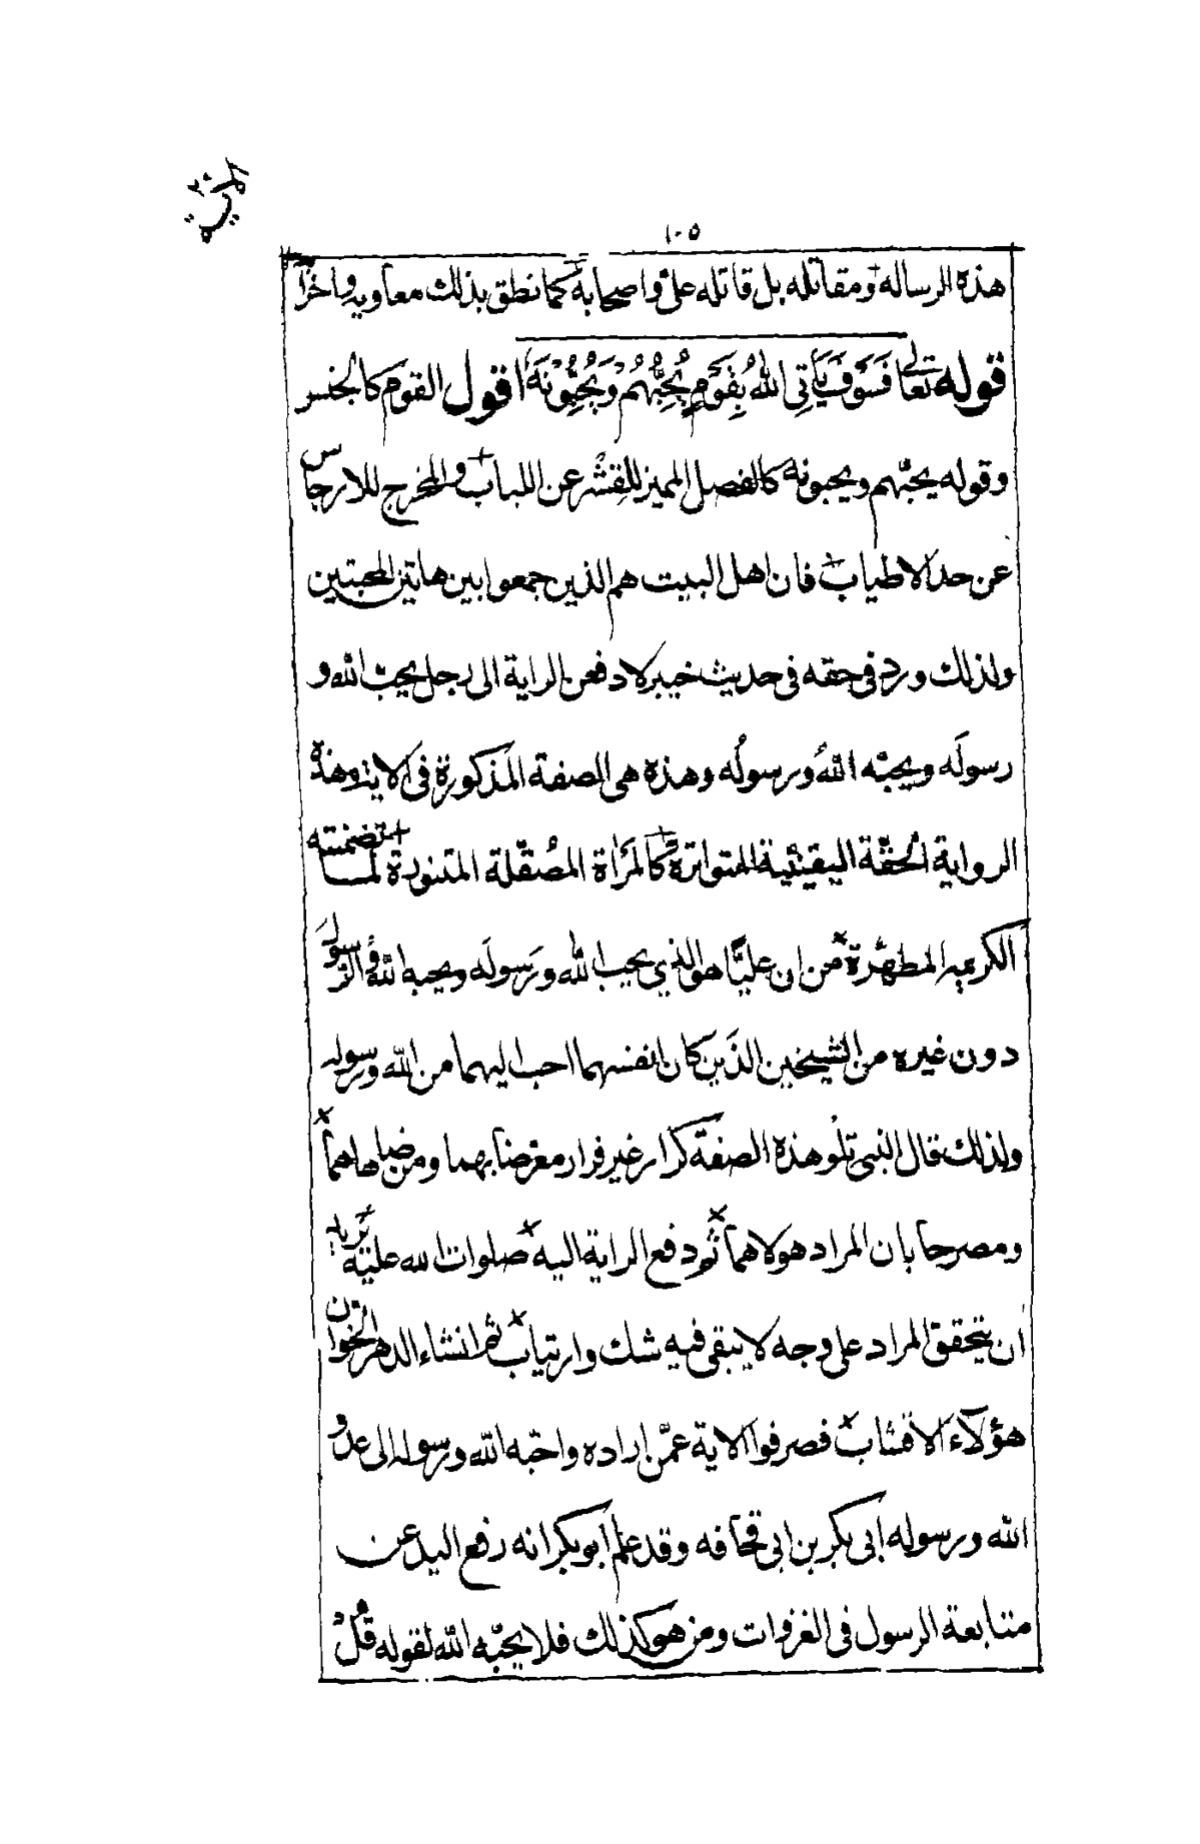 ١٠٥
هذه الرساله ومقاتله بل قاتله على واصحابه كما نطق بذلك معاويه واخرا
قوله تعالى فَسَوْفَ يَأتِى اللهُ بِقَوْمٍ يُحِبُّهُمْ وَيُحِبُّوْنَهُ اقول القوم كالجنس
وقوله يحبّهم ويحبونه كالفصل المميز للقِشْر عن اللباب والمخرج للارجاس
عن حد الاطياب فان اهل البيت هم الذين جمعوا بين هاتين المحبتين
ولذلك ورد فى حقه فى حديث خيبر لادفعن الراية الى رجل يحبّ الله و
رسولَه ويحبّه اللهُ ورسولُه وهذه هى الصفة المذكورة فى الاية وهذه
الرواية الحقّة اليقينية المتواترة كالمرَاة المصُقّلة المتنورة لما تضمنته
الكريمه المطهّرة من ان عليًّا هو الذي يحب الله ورَسولَه ويحبه اللهُ والرسولُ
دون غيره من الشيخين الذَين كان انفسهما احب اليهما من الله ورسوله
ولذلك قال النبى تلُو هذه الصفة كرار غير فرار معرّضا بهما ومن ضاهاهما
ومصرحا بان المراد هو لاهما ثم دفع الراية اليه صلوات الله عليه
ان يتحقق المراد على وجه لا يبقى فيه شك وارتياب ثم انشاء الدهر الخوان
هؤلآء الاقشاب فصرفوا الاية عمّن اراده واحبّه الله ورسوله الى عدو
الله ورسوله ابى بكر بن ابى قحافه وقد علم ابو بكر انه رفع اليد عن
متابعة الرسول فى الغزوات ومن هو كذلك فلا يحبّه الله لقوله قُلْ